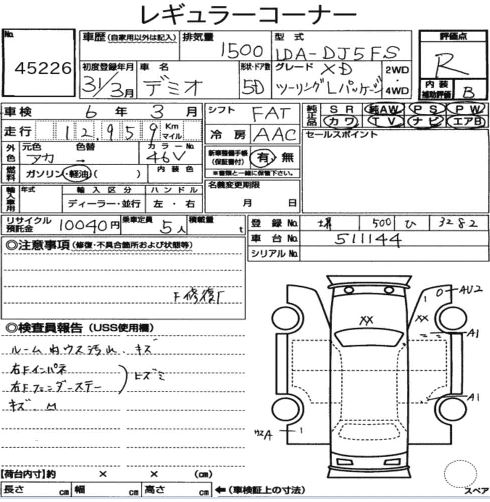 レギュラーコーナー
No.
45226
車歴 (自家用以外は記入)
初度登録年月
31年3月
車名
デミオ
排気量
1500
型式
LDA-DJ5FS
形状・ドア数
5D
グレード XD
ツーリングLパッケージ
2WD
4WD
評価点
R
内装
補助評価
B
車検 6年 3月
走行 12,959 Km マイル
外色
元色 アカ
色替
カラーNo. 46V
燃料
ガソリン・軽油( )
内装色
輸入車用
年式
輸入区分 ディーラー・並行
ハンドル 左・右
リサイクル預託金 10040円
乗車定員 5人
積載量 t
シフト FAT
冷房 AAC
新車整備手帳(保証書付) 有・無
※書類と一緒に保管下さい
名義変更期限
月 日
純正品
SR 純AW PS PW
カワ TV ナビ エアB
セールスポイント
登録No. 堺 500 ひ 3282
車台No. 511144
シリアルNo.
◎注意事項 (修復・不具合箇所および状態等)
F修復
◎検査員報告 (USS使用欄)
ルーム内ウス汚れ、キズ
右Fインパネ
右Fフェンダーステー
ヒズミ
キズ
XX
XX
AU2
A1
A1
【荷台内寸】 × × (cm)
長さ cm 幅 cm 高さ cm ←(車検証上の寸法)
スペア